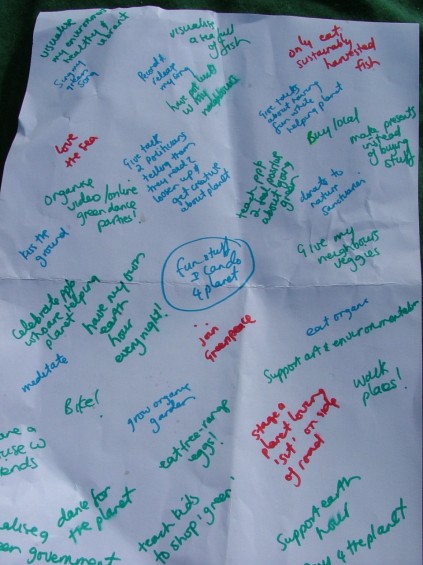 visualise
my environment
healthy &
vibrant
visualise
a sea
fish
only eat
sustainably
harvested
fish
Sing
song
release
my
have
w my
neighbours
give talks
about having
fun while
helping planet
Buy local
make presents
instead
of buying
stuff
love
the sea
Give talk
2 politicians
tellin them
they need 2
loosen up &
get creative
about planet
teach ppl
2 talk positive
about going
green
donate to
nature
sanctuaries
Organise
video/online
green dance
parties!
kiss the
ground
fun stuff
I can do
4 planet
Give my
neighbours
veggies
Celebrate ppl
who are
planet helping
have my own
earth
hour
every night!
join
Greenpeace
eat organic
Support art & environmentalism
meditate
Bike!
grow organic
garden
walk
places!
stage a
planet loving
'sit' on side
of road
eat free-range
eggs!
dance for
the planet
teach kids
to shop 'green'!
Support earth
hour
government
4 the planet